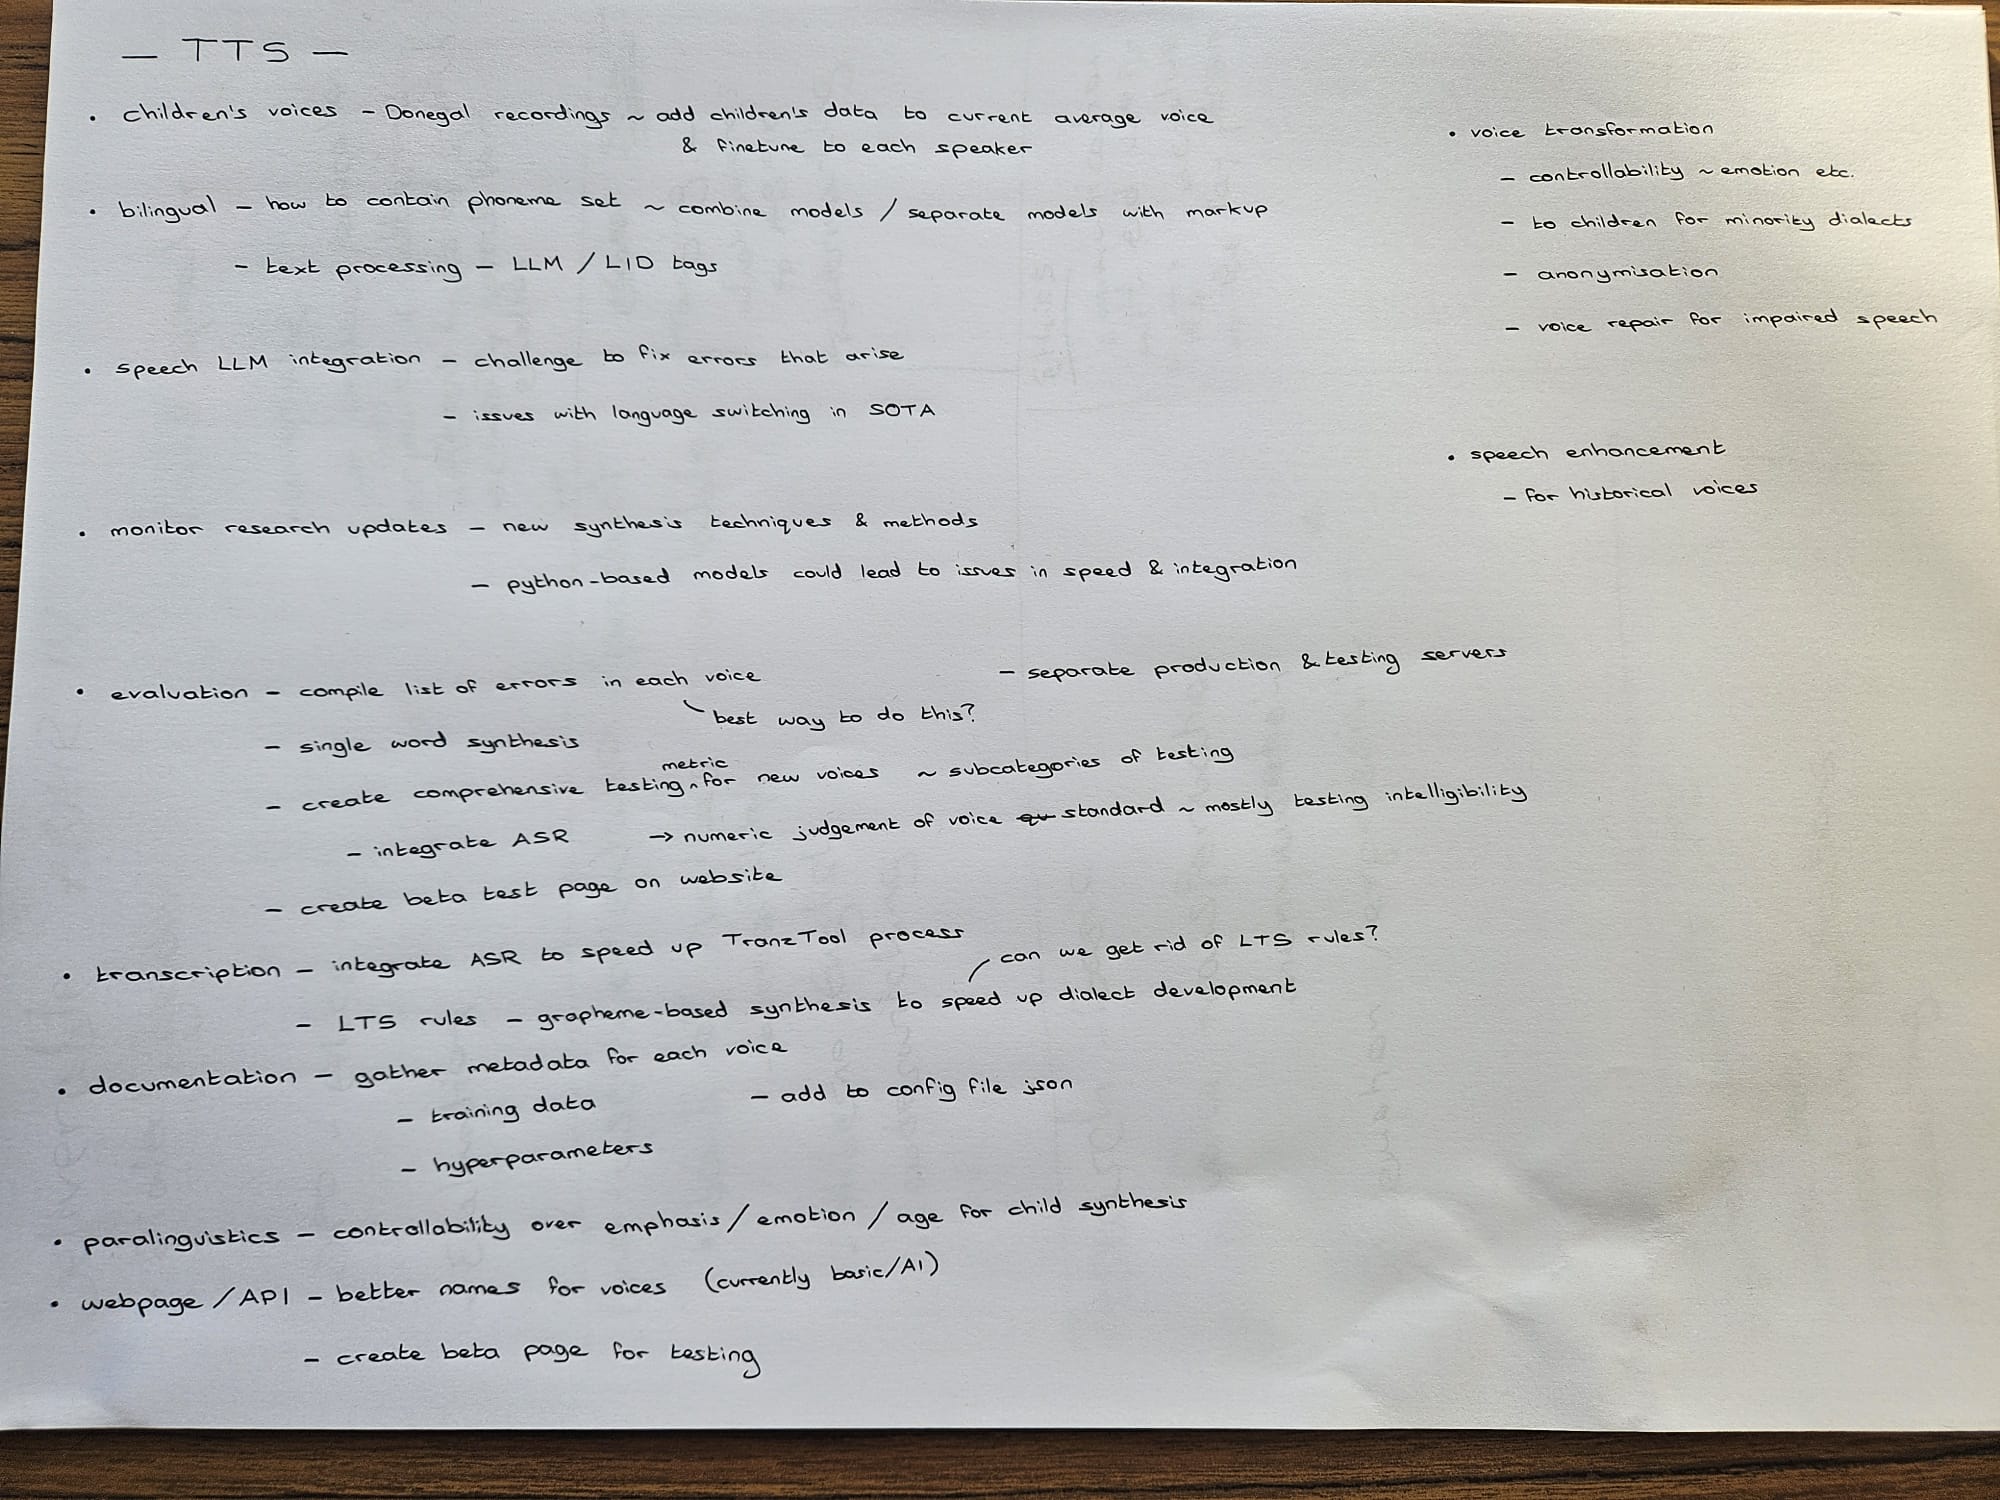 — TTS —
• children's voices – Donegal recordings ~ add children's data to current average voice
& finetune to each speaker
• bilingual – how to contain phoneme set ~ combine models / separate models with markup
– text processing – LLM / LID tags
• speech LLM integration – challenge to fix errors that arise
– issues with language switching in SOTA
• monitor research updates – new synthesis techniques & methods
– python-based models could lead to issues in speed & integration
• evaluation – compile list of errors in each voice – separate production & testing servers
best way to do this?
– single word synthesis
– create comprehensive testing metric for new voices ~ subcategories of testing
– integrate ASR → numeric judgement of voice standard ~ mostly testing intelligibility
– create beta test page on website
• transcription – integrate ASR to speed up TranzTool process
can we get rid of LTS rules?
– LTS rules – grapheme-based synthesis to speed up dialect development
• documentation – gather metadata for each voice
– training data – add to config file json
– hyperparameters
• paralinguistics – controllability over emphasis / emotion / age for child synthesis
• webpage / API – better names for voices (currently basic/AI)
– create beta page for testing
• voice transformation
– controllability ~ emotion etc.
– to children for minority dialects
– anonymisation
– voice repair for impaired speech
• speech enhancement
– for historical voices